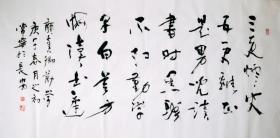 三更燈火
五更雞正
是男兒讀
書时黑髮
不知勤學
早白首方
悔讀書遲
顏真卿勸學
春月之初
於長安